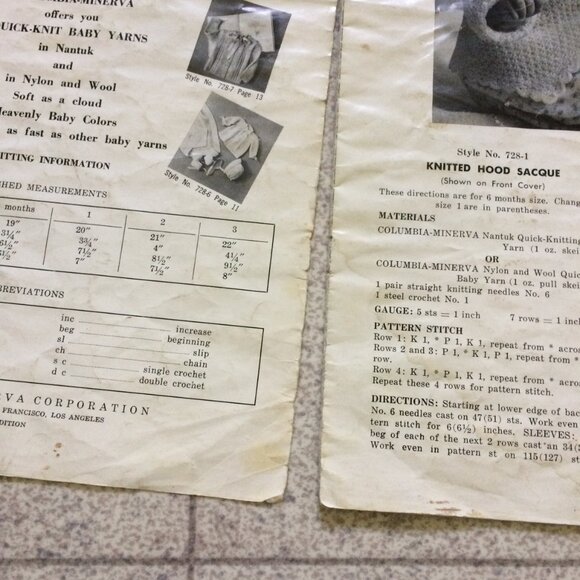 offers you
QUICK-KNIT BABY YARNS
in Nantuk
and
in Nylon and Wool
Soft as a cloud
Heavenly Baby Colors
as fast as other baby yarns
INFORMATION
MEASUREMENTS
months 1 2 3
19" 20" 21" 22"
3¾" 4" 4¼"
7½" 8½" 9½"
7" 7½" 8"
inc increase
beg beginning
sl slip
ch chain
s c single crochet
d c double crochet
CORPORATION
FRANCISCO, LOS ANGELES
EDITION
Style No. 728-7 Page 13
Style No. 728-6 Page 11
Style No. 728-1
KNITTED HOOD SACQUE
(Shown on Front Cover)
These directions are for 6 months size.
size 1 are in parentheses.
MATERIALS
COLUMBIA-MINERVA Nantuk Quick-Knitting
Yarn (1 oz.
OR
COLUMBIA-MINERVA Nylon and Wool Quick
Baby Yarn (1 oz. pull
1 pair straight knitting needles No. 6
1 steel crochet No. 1
GAUGE: 5 sts = 1 inch 7 rows = 1 inch
PATTERN STITCH
Row 1: K 1, * P 1, K 1, repeat from *
Rows 2 and 3: P 1, * K 1, P 1, repeat from *
row.
Row 4: K 1, * P 1, K 1, repeat from *
Repeat these 4 rows for pattern stitch.
DIRECTIONS: Starting at lower edge of
No. 6 needles cast on 47(51) sts. Work even
tern stitch for 6(6½) inches. SLEEVES:
beg of each of the next 2 rows cast an
Work even in pattern st on 115(127)